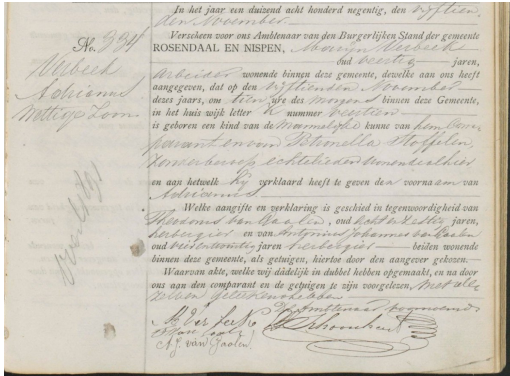 In het jaar een duizend acht honderd negentig, den vijftien
den November
No. 334
Verbeek
Adrianus
Wettige Zoon
Verscheen voor ons Ambtenaar van den Burgerlijken Stand der gemeente
ROSENDAAL EN NISPEN, Marijn Verbeek
oud veertig jaren,
arbeider wonende binnen deze gemeente, dewelke aan ons heeft
aangegeven, dat op den vijftienden November
dezes jaars, om tien ure des morgens binnen deze Gemeente,
in het huis wijk letter nummer veertien
is geboren een kind van de Mannelijke kunne van hem Com-
parant en van Petronella Stoffelen,
zonder beroep echtelieden wonende alhier
en aan hetwelk hij verklaard heeft te geven den voornaam van
Adrianus
Welke aangifte en verklaring is geschied in tegenwoordigheid van
Theodorus van Gaalen, oud acht en zestig jaren,
herbergier en van Antonius Johannes van Gaalen
oud jaren herbergier beiden wonende
binnen deze gemeente, als getuigen, hiertoe door den aangever gekozen.
Waarvan akte, welke wij dádelijk in dubbel hebben opgemaakt, en na door
ons aan den comparant en de getuigen te zijn voorgelezen, met alle
hebben geteekend
Ambtenaar voornoemd
M Verbeek
A J. van Gaalen